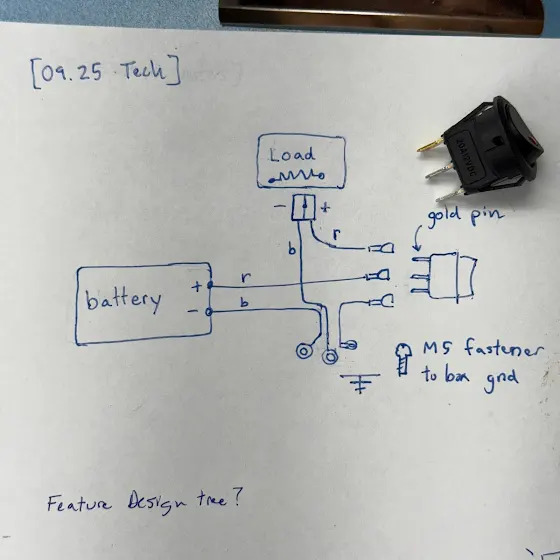 [09.25 Tech]
Load
- +
20A12VDC
gold pin
r
b
battery
+ r
- b
M5 fastener
to box gnd
Feature Design tree?